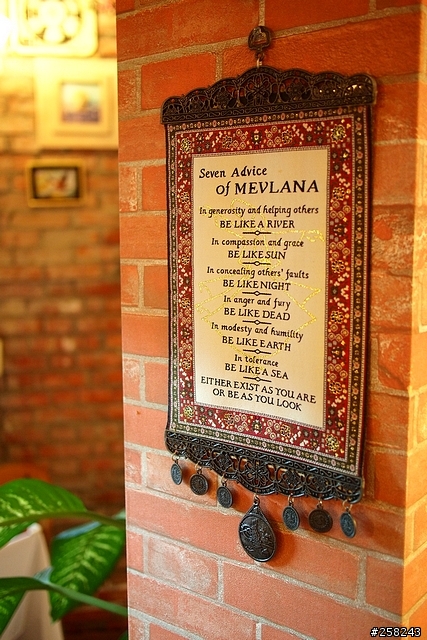 Seven Advice
of MEVLANA
In generosity and helping others
BE LIKE A RIVER
In compassion and grace
BE LIKE SUN
In concealing others' faults
BE LIKE NIGHT
In anger and fury
BE LIKE DEAD
In modesty and humility
BE LIKE EARTH
In tolerance
BE LIKE A SEA
EITHER EXIST AS YOU ARE
OR BE AS YOU LOOK
#258243